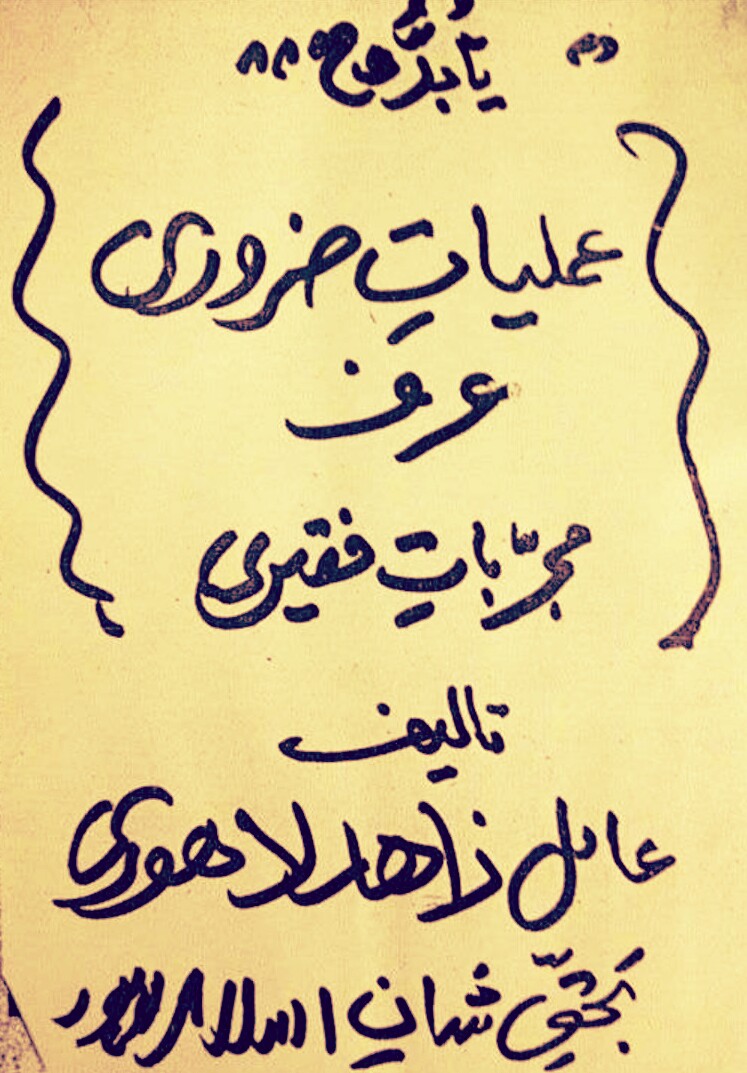 یا بدُّوح
عملیاتِ ضروری
عرف
مجرّباتِ فقیری
تالیف
عامل زاھد لاھوری
بحقِّ شانِ اسلام لاہور